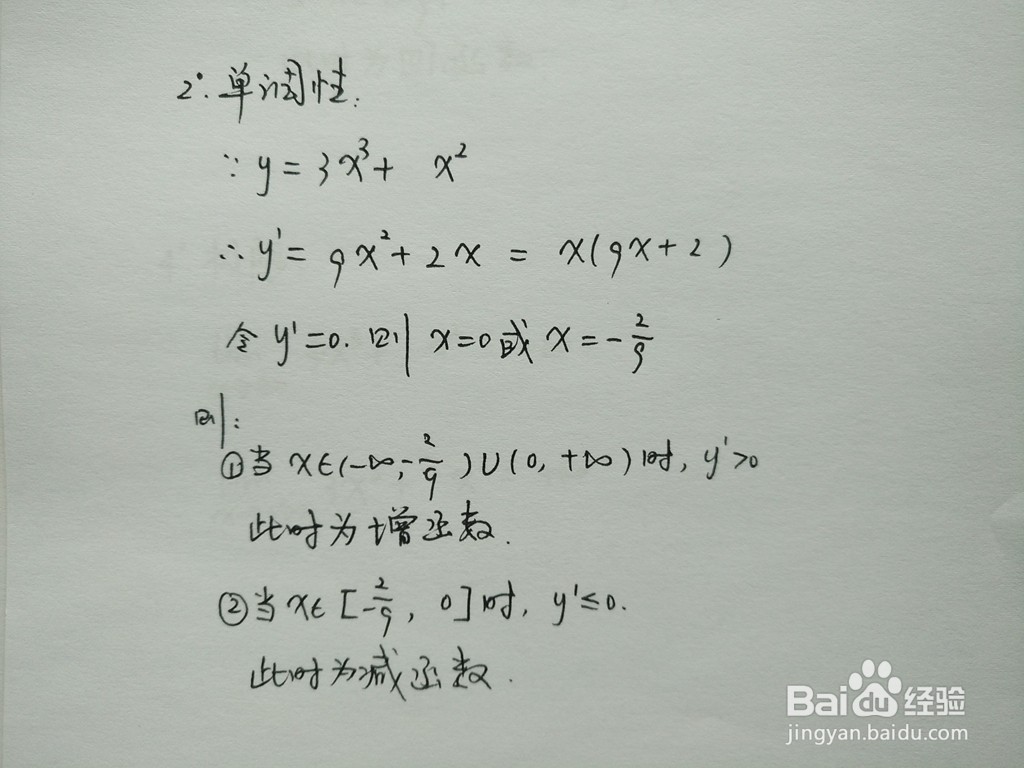 2°. 单调性:
∵ y = 3x³ + x²
∴ y' = 9x² + 2x = x(9x+2)
令 y'=0. 则 x=0 或 x = -2/9
则:
①当 x∈(-∞,-2/9)∪(0,+∞)时, y'>0
此时为增函数.
②当 x∈[-2/9, 0]时, y'≤0.
此时为减函数.
Baidu经验
jingyan.baidu.com